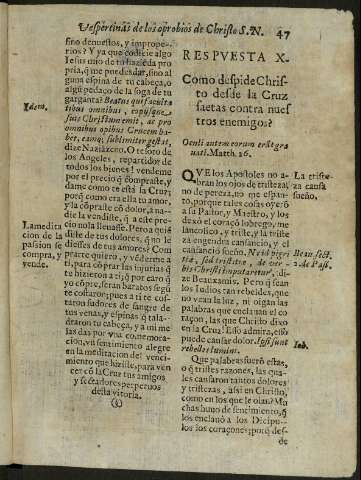 Vespertinas de los oprobios de Christo S.N. 47
sino denuestos, y imprope-
rios? Y ya que codicie algo
Iesus mio de tu hazienda pro
pria, q̃ me puedes dar, sino al
guna espina de tu cabeça, o
algũ pedaço de la soga de tu
garganta? Beatus qui facultatibus
omnibus, corpusque
suis Christum emit, ac pro
omnibus opibus Crucem ha-
ber, camq; sublimiter gestat,
dize Naziãzeno. O tesoro de
los Angeles, repartidor de
todos los bienes! vendeme
por el precio q̃ compraste, y
dame como te està la Cruz;
porq̃ como era ella tu amor,
y la cõpraste cõ dolor, a na-
die la vendiste, q̃ a este pre
cio nola lleuasse. Pero a quiè
diste de tus dolores, que no le
diesses de tus amores? Com
prarte quiero, y vẽderme a
ti, para cõprar las injurias q̃
te hizieron a ti; q̃ por caro q̃
yo cõpre, serãn baratos segũ
te costaron; pues a ti te cos-
taron sudores de sangre de
tus venas, y espinas q̃ tala-
draron tu cabeça, y a mi me
las das por vna comemora-
cion, vn sentimiento alegre
en la meditacion del venci-
miento que hiziste, para ven
cer cõ la Cruz tus amigos
y sectadores perpetuos
desta vitoria.
(§)
Idem.
La medita
cion de la
passion se
compra, y
vende.
RESPVESTA X.
Como despide Chris-
to desde la Cruz
saetas contra nues
tros enemigos?
Oculi autem eorum erãt gra
uati. Matth. 26.
QVE los Apostoles no a-
bran los ojos de tristeza,
no de pereza, no me espanto,
porque tales cosas oyerõ
a su Pastor, y Maestro, y los
dexò el coraçõ lobrego, me
lancolico, y triste, y la triste
za engendra cansancio, y el
cansancio sueño. Ne id pigri
tia, sed tristitia, de ver-
bis Christi imputaretur, di-
ze Beauxamis. Pero q̃ sean
los Iudios tan rebeldes, que
no vean la luz, ni oigan las
palabras que enclauan el co
raçon, las que Christo dixo
en la Cruz! Esso admira, esso
puede causar dolor. Ipsi sunt
rebelles lumini.
Que palabras fuerõ estas,
o q̃ tristes razones, las qua-
les cansaron tantos dolores
y tristezas, assi en Christo,
como en los que le oian? Mu
chas huuo de sencimiento, q̃
los enclauò a los Dicipu-
los los coraçones; porq̃ des-
de
La triste-
za causa
sueño.
Beau. sect.
2. de Pass.
Iob.